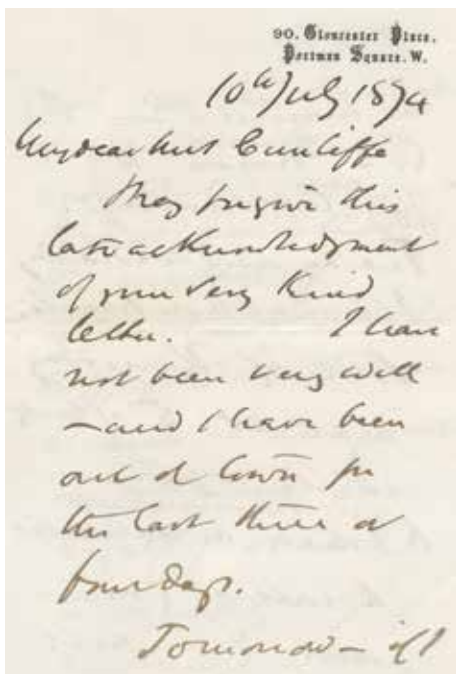 90. Gloucester Place.
Portman Square. W.
10th July 1874
My dear Mrs Cunliffe
Pray forgive this
late acknowledgment
of your very kind
letter. I have
not been very well
– and I have been
out of town for
the last three or
four days.
Tomorrow – if I